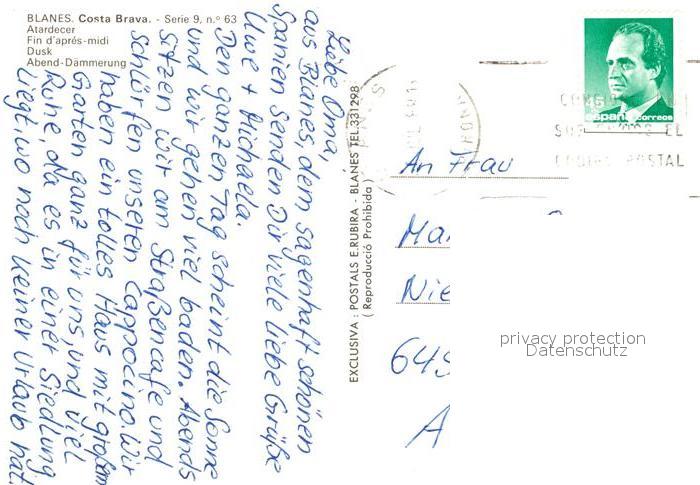 BLANES. Costa Brava. - Serie 9, n.º 63
Atardecer
Fin d'aprés-midi
Dusk
Abend-Dämmerung
Liebe Oma,
aus Blanes, dem sagenhaft schönen
Spanien senden Dir viele liebe Grüße
Uwe + Michaela.
Den ganzen Tag scheint die Sonne
und wir gehen viel baden. Abends
sitzen wir am Straßencafe und
schlürfen unseren Cappocino. Wir
haben ein tolles Haus mit großem
Garten ganz für uns, und viel
Ruhe, da es in einer Siedlung
liegt, wo noch keiner Urlaub hat.
EXCLUSIVA : POSTALS E. RUBIRA - BLANES TEL. 331298
( Reproducció Prohibida )
45
españa correos
EL
CODIGO POSTAL
An Frau
Ma
Nie
645
A
privacy protection
Datenschutz